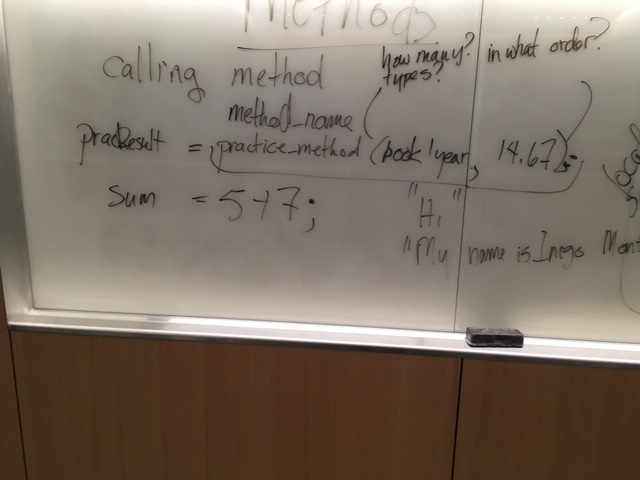 Methods
calling method how many? in what order?
types?
method_name ( )
pracResult = practice_method (book1year, 14.67);
sum = 5+7;
"Hi"
"My name is Inigo Mont